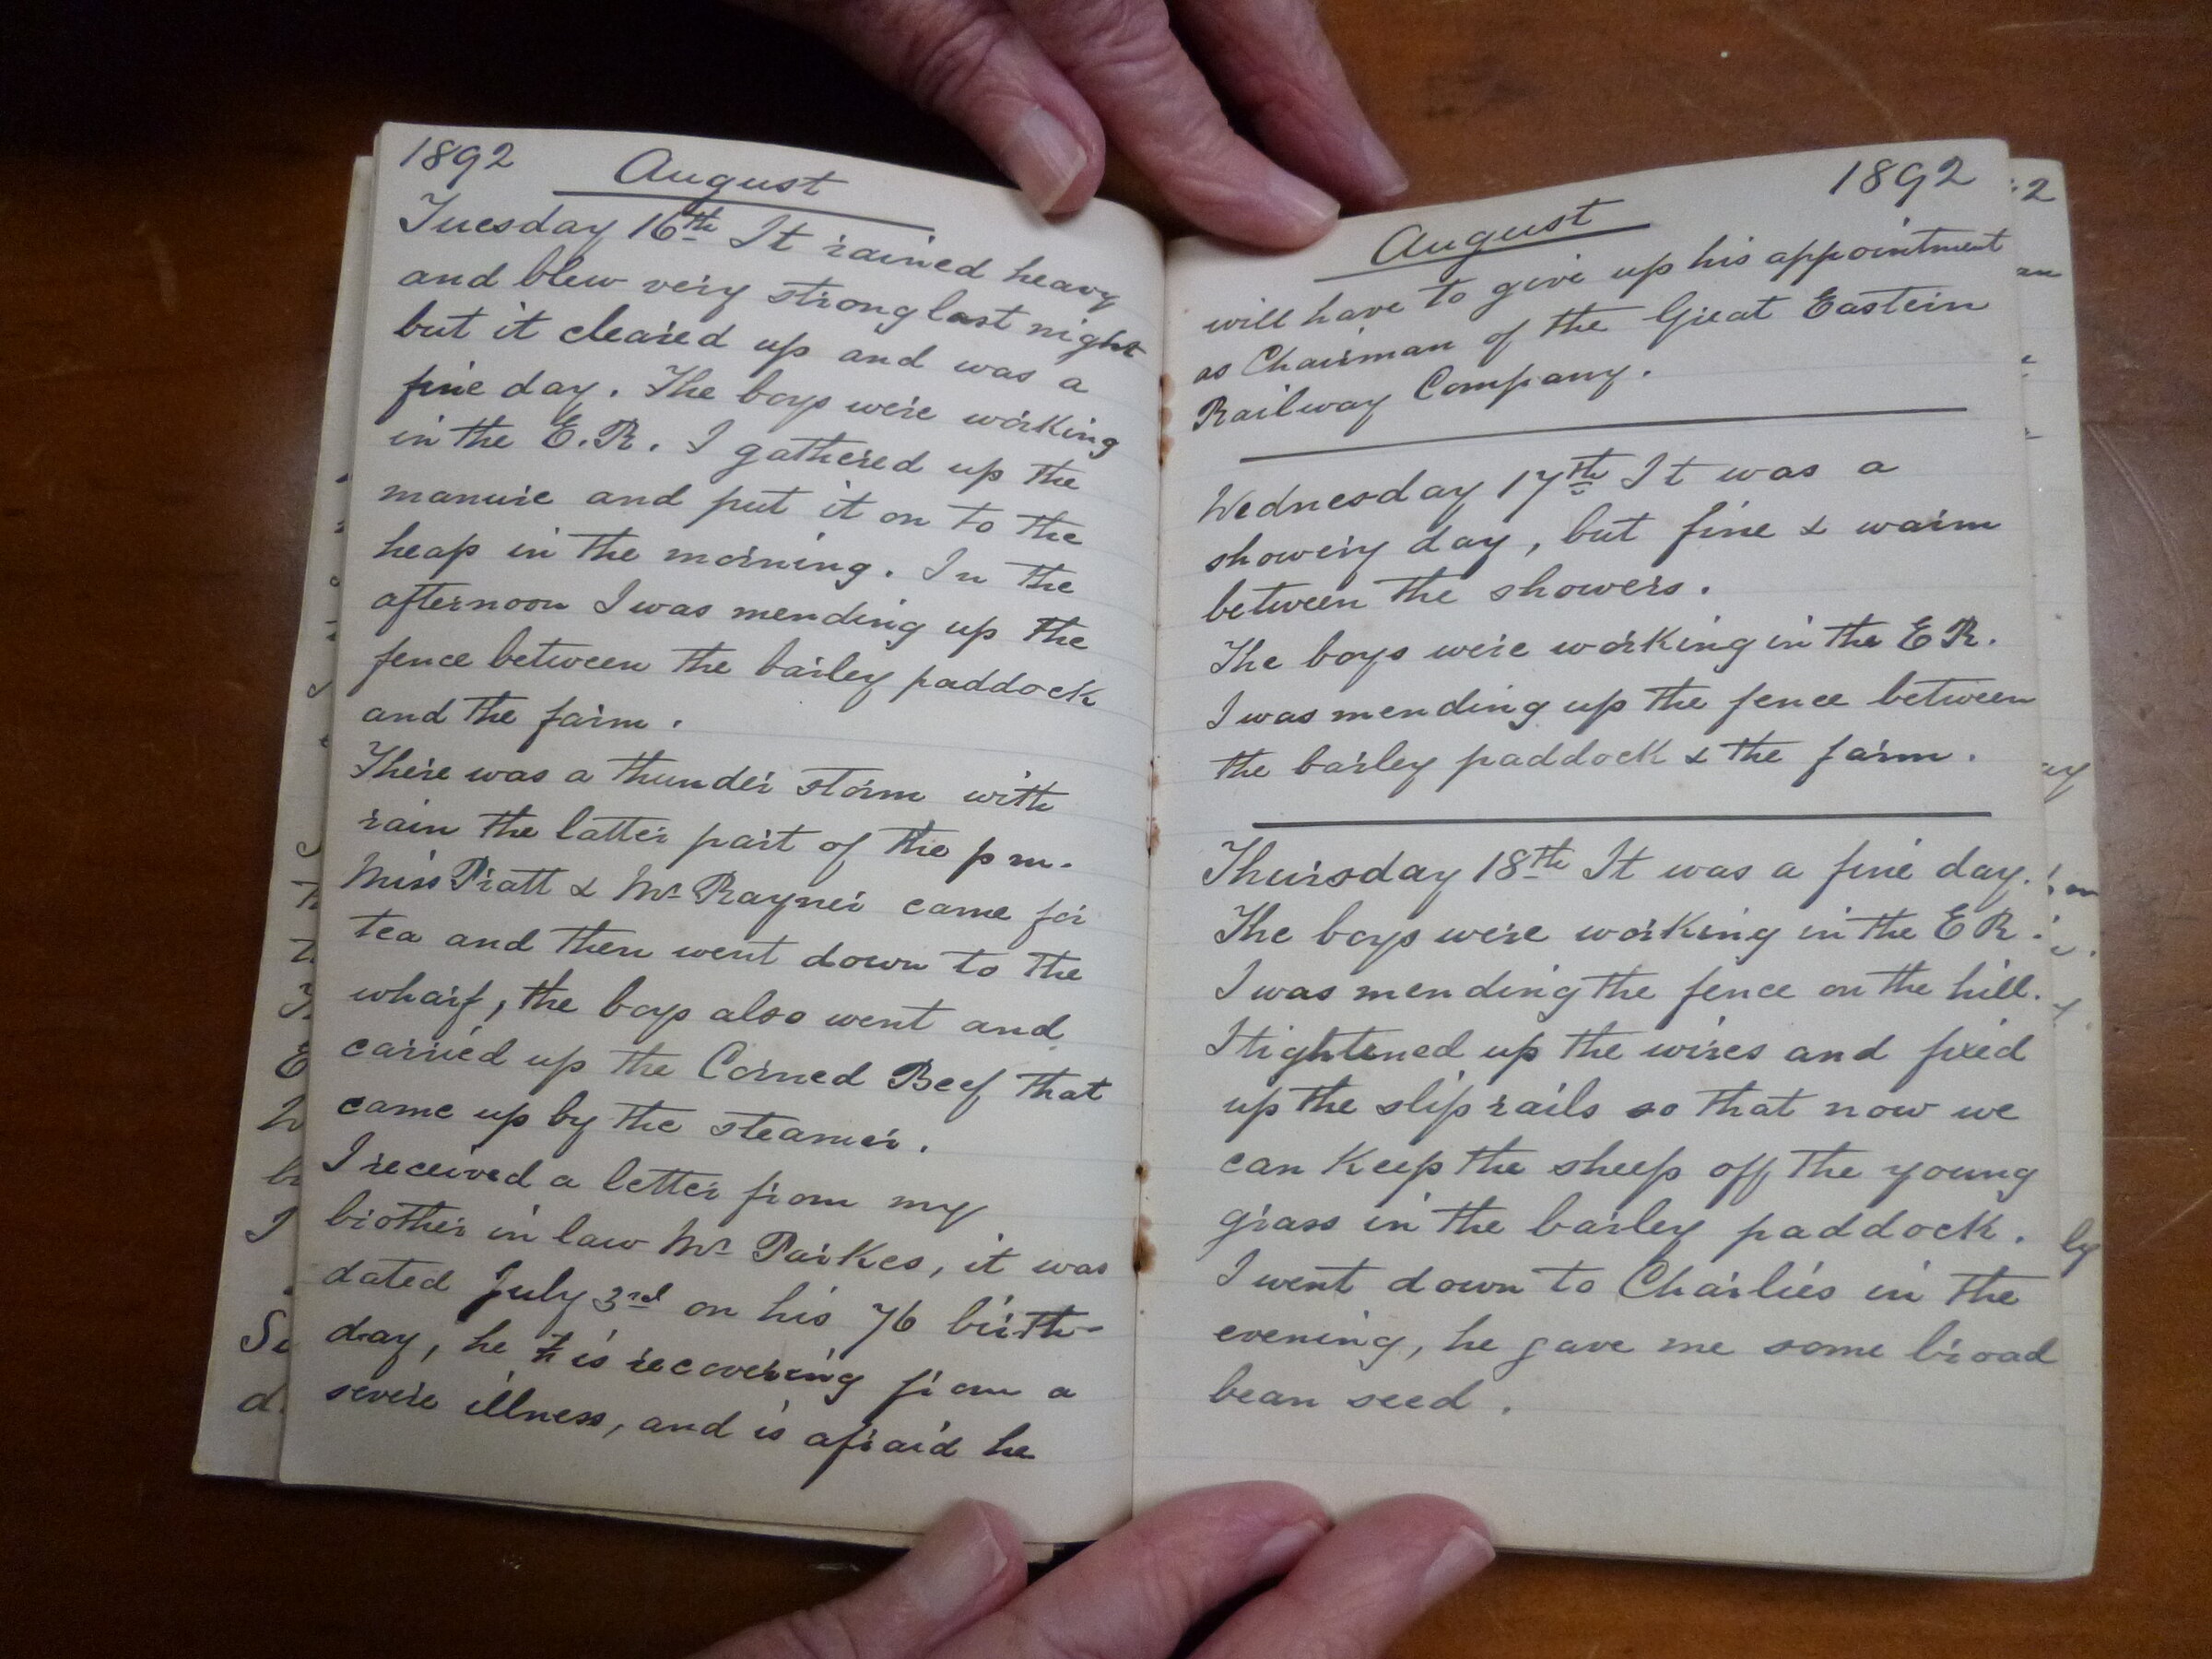 1892 August
Tuesday 16th It rained heavy
and blew very strong last night
but it cleared up and was a
fine day. The boys were working
in the E.R. I gathered up the
manure and put it on to the
heap in the morning. In the
afternoon I was mending up the
fence between the barley paddock
and the farm.
There was a thunder storm with
rain the latter part of the pm.
Miss Pratt & Mr Rayner came for
tea and then went down to the
wharf, the boys also went and
carried up the Corned Beef that
came up by the steamer.
I received a letter from my
brother in law Mr Parkes, it was
dated July 3rd on his 76 birth-
day, he is recovering from a
severe illness, and is afraid he
August 1892
will have to give up his appointment
as Chairman of the Great Eastern
Railway Company.
Wednesday 17th It was a
showery day, but fine & warm
between the showers.
The boys were working in the E R.
I was mending up the fence between
the barley paddock & the farm.
Thursday 18th It was a fine day.
The boys were working in the E R.
I was mending the fence on the hill.
I tightened up the wires and fixed
up the slip rails so that now we
can keep the sheep off the young
grass in the barley paddock.
I went down to Charlies in the
evening, he gave me some broad
bean seed.